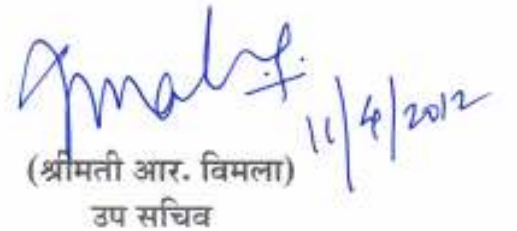 11/4/2012
(श्रीमती आर. विमला)
उप सचिव